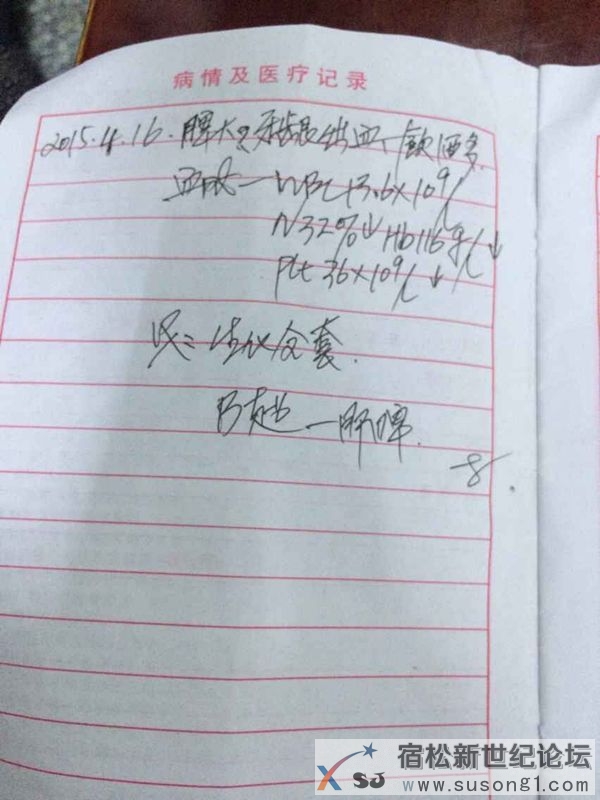 病情及医疗记录
2015.4.16. 脾大 牙龈出血 饮酒多
血常 — WBC 13.6×10⁹/L
N32%↓ Hb116g/L↓
Plt 36×10⁹/L↓
全套.
B超 — 肝脾.
宿松新世纪论坛
XSJ
www.susong1.com